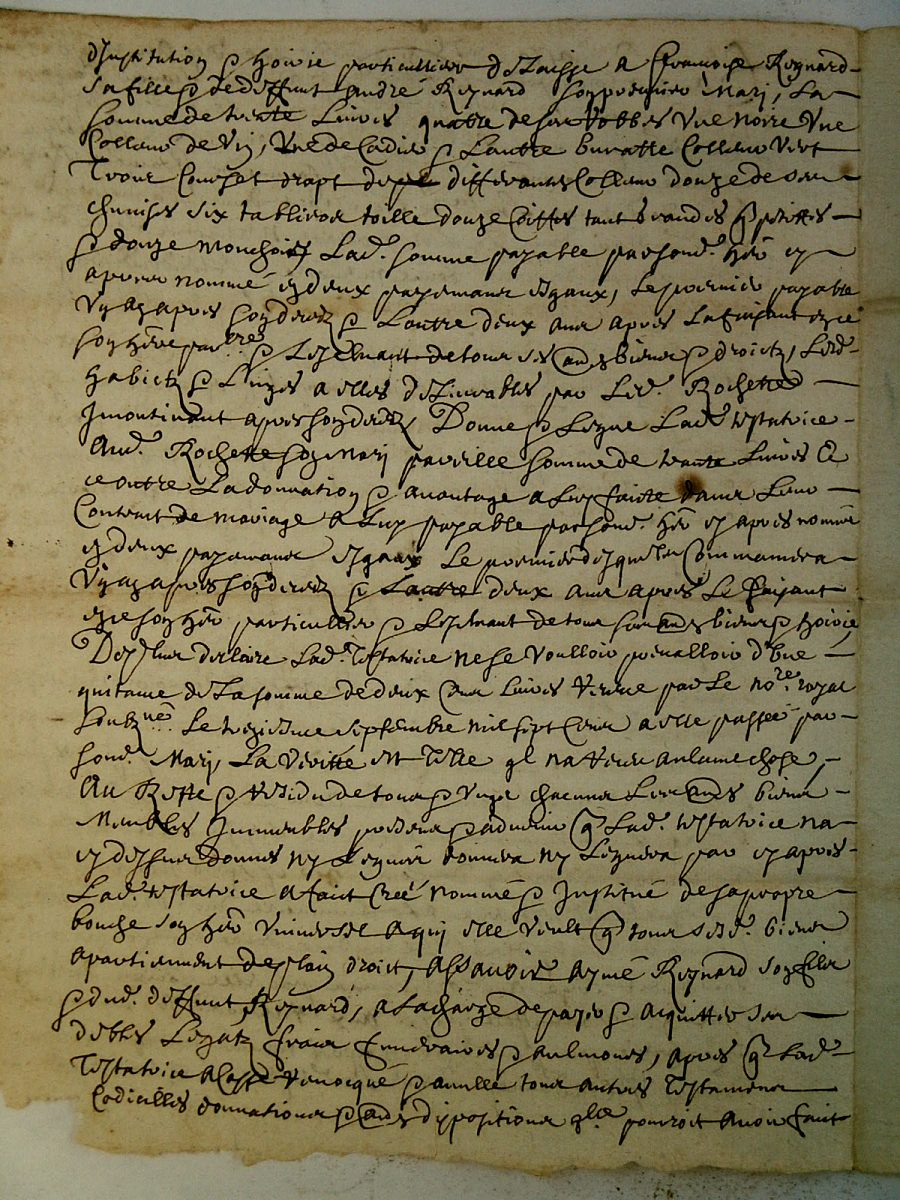 d'Institution & hoirie particulliere delaisse a Francoise Reynard
sa fille & de deffunt André Reynard son premier Mary, La
somme de trante Livres quatre de ses Robbes Une Noire Une
Colleur de Vin, Une de Cadis & Lautre buratte Colleur Vert
Trois Corset drapt de differantes Colleur douze de ses
chemises six tabliers toille douze Coiffes tant grandes q petittes
& douze mouchoirs Lad. somme payable par sond. Her cy
apres nommé en deux payemans esgaux, Le premier payable
Un an apres son deces & Lautre deux ans apres La faisant en ce
son here par.re & Lexeluant de tous ses aues biens & droictz, Lesd.
habictz & Linges a elles deLiurables par Led. Rochette
Incontinant apres son deces, Donne & Legue Lad. testatrice
Aud. Rochette son Mary pareille somme de trante Livres Et
ce outre La donnation & auantage a Luy faicte dans Leur
Contract de mariage a Luy payable par sond. Her cy apres nommé
en deux payemans esgaux Le premier desquels Commancera
Un an apres son deces & Lautre deux ans apres Le faisant
en ce son her particullier & Lexeluant de tous ses aues biens & hoirie,
De plus declaire Lad. Testatrice ne se Voulloir preualloir d'Une
quitance de La somme de deux Cens Livres receue par Le no.re royal
soubz.né Le septembre mil sept Cens a elle passée par
sond. Mary, La Verité est Telle ql na receu aulcune chose,
Au Reste & residu de tous & Ungs chacuns ses aues biens
Meubles Immeubles presens & aduenir q Lad. testatrice na
cy dessus donnes ny Legués donnera ny Leguera par cy apres
Lad. testatrice a faict Creé nommé & Institué de sa propre
bouche son her Universel a qui elle Veult q tous sesd. biens
apartiennent de plain droict, Assauoir aymé Reynard son filz
& dud. deffunt Reynard, a La charge de payer & acquitter ses
debtes Legatz fraix funeraires & aulmones, apres q Lad.
Testatrice a Cassé reuocqué & anullé tous autres Testamens
Codicilles donnations & aues dispositions qlle pourroit auoir faict